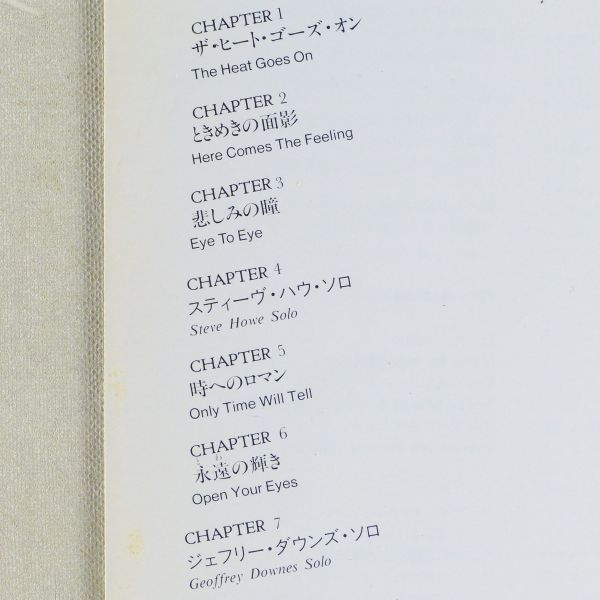 CHAPTER 1
ザ・ヒート・ゴーズ・オン
The Heat Goes On
CHAPTER 2
ときめきの面影
Here Comes The Feeling
CHAPTER 3
悲しみの瞳
Eye To Eye
CHAPTER 4
スティーヴ・ハウ・ソロ
Steve Howe Solo
CHAPTER 5
時へのロマン
Only Time Will Tell
CHAPTER 6
とわ
永遠の輝き
Open Your Eyes
CHAPTER 7
ジェフリー・ダウンズ・ソロ
Geoffrey Downes Solo